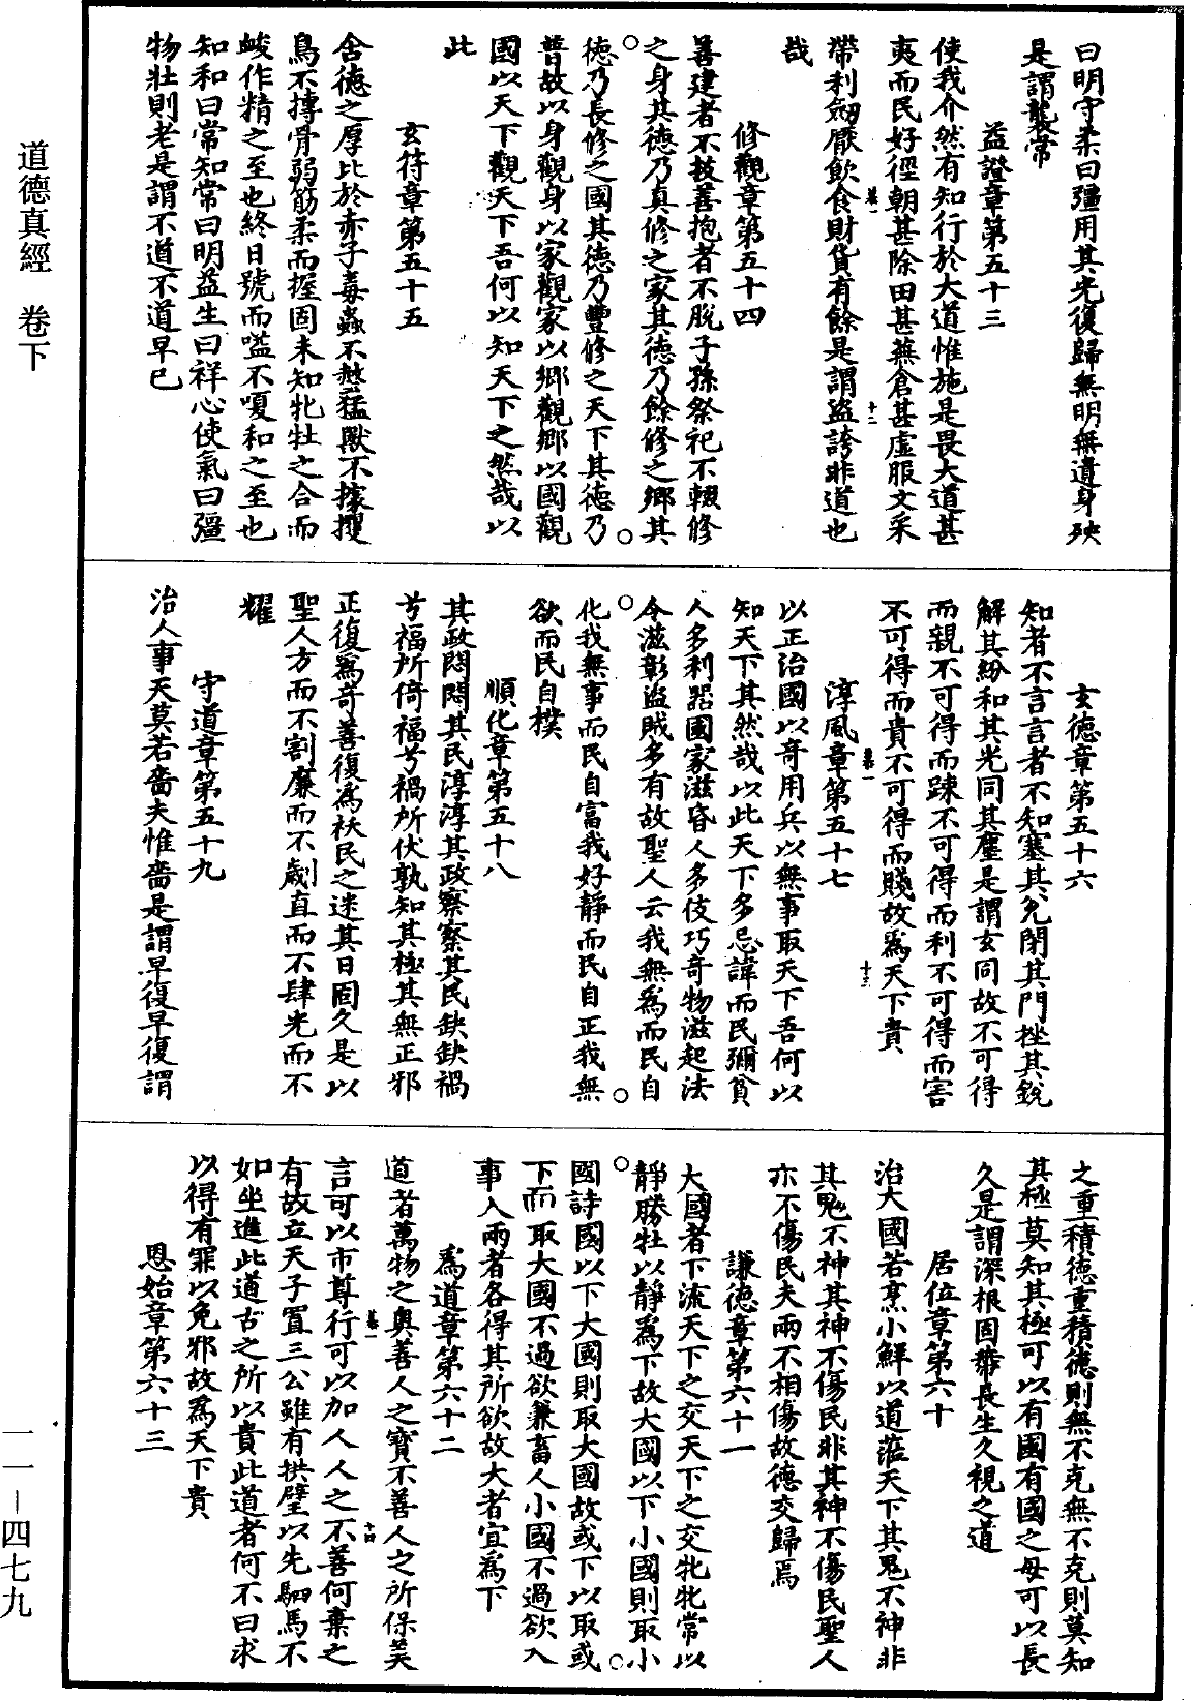 曰明守柔曰彊用其光復歸無明無遺身殃
是謂襲常
益證章第五十三
使我介然有知行於大道惟施是畏大道甚
夷而民好徑朝甚除田甚蕪倉甚虛服文采
帶利劒厭飲食財貨有餘是謂盜誇非道也
哉
修觀章第五十四
善建者不拔善抱者不脫子孫祭祀不輟修
之身其德乃真修之家其德乃餘修之鄉其
德乃長修之國其德乃豐修之天下其德乃
普故以身觀身以家觀家以鄉觀鄉以國觀
國以天下觀天下吾何以知天下之然哉以
此
玄符章第五十五
含德之厚比於赤子毒蟲不螫猛獸不據攫
鳥不搏骨弱筋柔而握固未知牝牡之合而
峻作精之至也終日號而嗌不嗄和之至也
知和曰常知常曰明益生曰祥心使氣曰彊
物壯則老是謂不道不道早已
玄德章第五十六
知者不言言者不知塞其兌閉其門挫其銳
解其紛和其光同其塵是謂玄同故不可得
而親不可得而踈不可得而利不可得而害
不可得而貴不可得而賤故為天下貴
淳風章第五十七
以正治國以奇用兵以無事取天下吾何以
知天下其然哉以此天下多忌諱而民彌貧
人多利器國家滋昏人多伎巧奇物滋起法
令滋彰盜賊多有故聖人云我無為而民自
化我無事而民自富我好靜而民自正我無
欲而民自樸
順化章第五十八
其政悶悶其民淳淳其政察察其民缺缺禍
兮福所倚福兮禍所伏孰知其極其無正邪
正復為奇善復為祅民之迷其日固久是以
聖人方而不割廉而不劌直而不肆光而不
耀
守道章第五十九
治人事天莫若嗇夫惟嗇是謂早復早復謂
之重積德重積德則無不克無不克則莫知
其極莫知其極可以有國有國之母可以長
久是謂深根固蒂長生久視之道
居位章第六十
治大國若烹小鮮以道蒞天下其鬼不神非
其鬼不神其神不傷民非其神不傷民聖人
亦不傷民夫兩不相傷故德交歸焉
謙德章第六十一
大國者下流天下之交天下之交牝牝常以
靜勝牡以靜為下故大國以下小國則取小
國詩國以下大國則取大國故或下以取或
下而取大國不過欲兼畜人小國不過欲入
事人兩者各得其所欲故大者宜為下
為道章第六十二
道者萬物之奧善人之寶不善人之所保美
言可以市尊行可以加人人之不善何棄之
有故立天子置三公雖有拱璧以先駟馬不
如坐進此道古之所以貴此道者何不曰求
以得有罪以免邪故為天下貴
恩始章第六十三
道德真經 卷下
一一－四七九